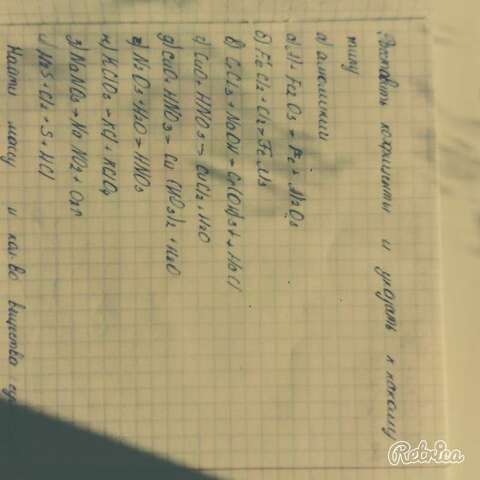 Расставить коэффициенты и указать к какому
типу
а) Al + Fe2O3 = Fe + Al2O3
б) FeCl2 + Cl2 = FeCl3
в) CrCl3 + NaOH = Cr(OH)3 + NaCl
г) CuO + HNO3 = CuCl2 + H2O
д) CuO + HNO3 = Cu(NO3)2 + H2O
N2O5 + H2O = HNO3
KClO3 = KCl + KClO4
з) NaNO3 = NaNO2 + O2
H2S + Cl2 = S + HCl
Найти массу и кол-во вещества
Retrica